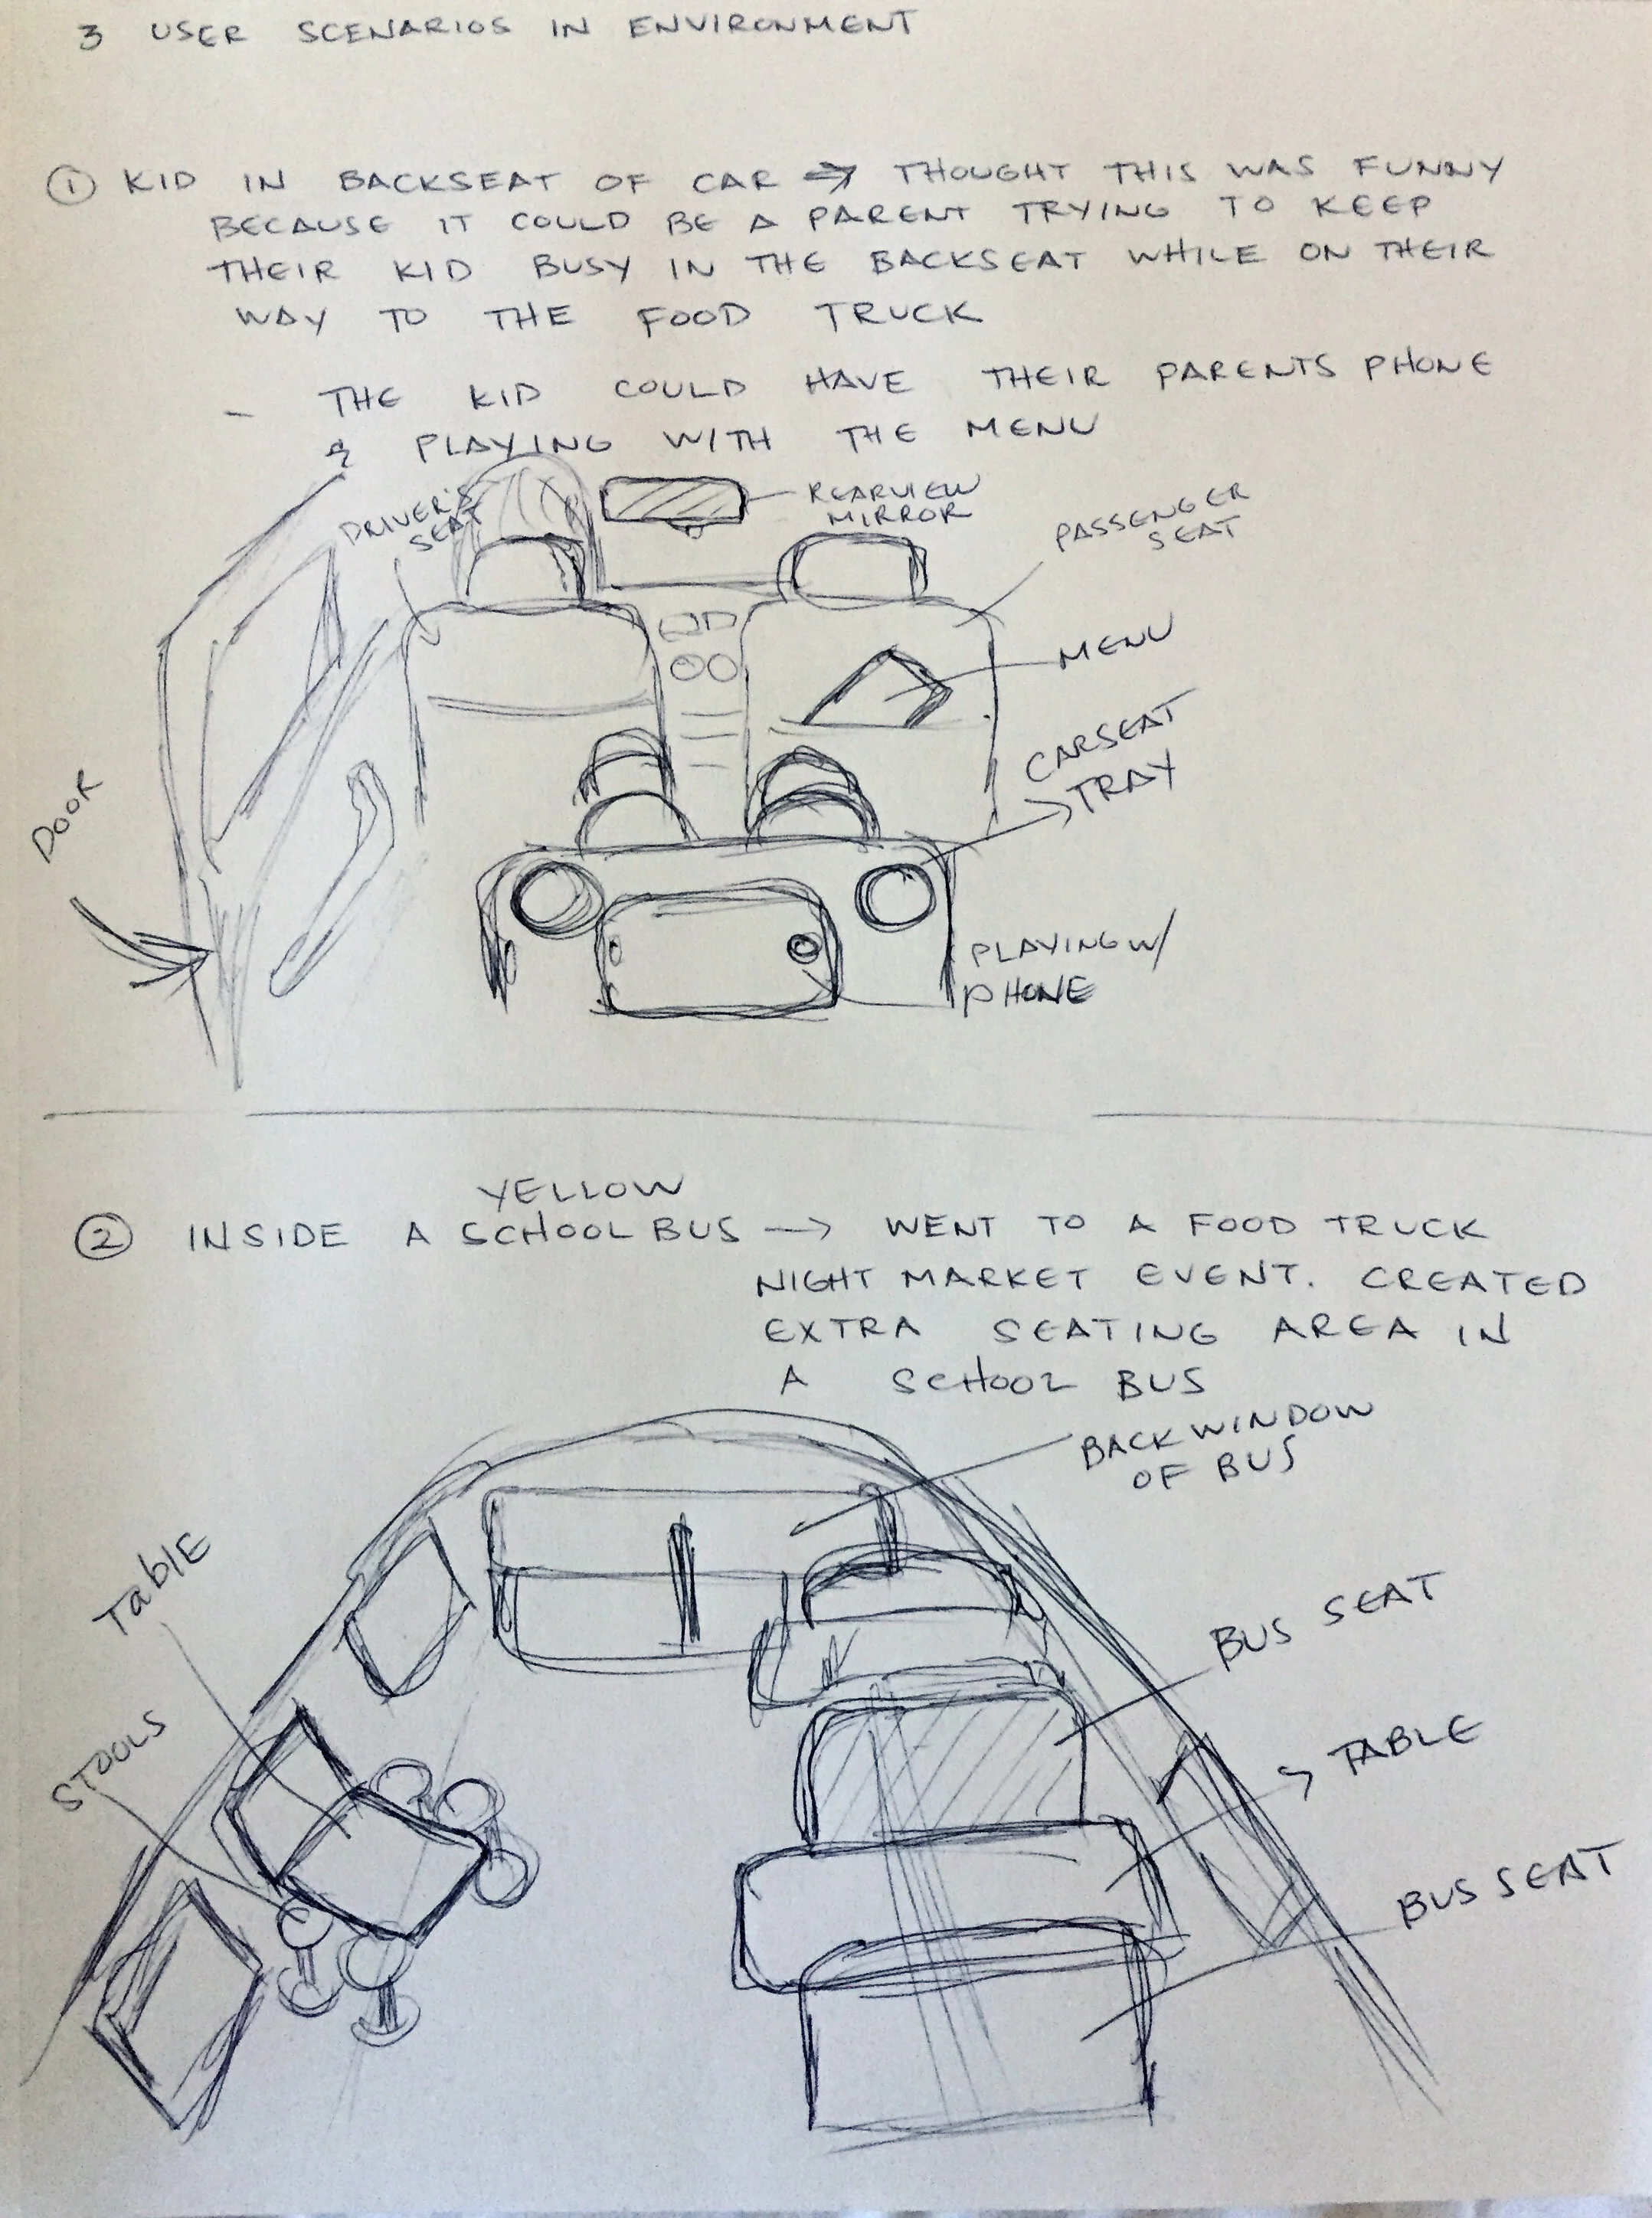 3 USER SCENARIOS IN ENVIRONMENT
① KID IN BACKSEAT OF CAR → THOUGHT THIS WAS FUNNY
BECAUSE IT COULD BE A PARENT TRYING TO KEEP
THEIR KID BUSY IN THE BACKSEAT WHILE ON THEIR
WAY TO THE FOOD TRUCK
- THE KID COULD HAVE THEIR PARENTS PHONE
& PLAYING WITH THE MENU
DRIVER'S
SEAT
REARVIEW
MIRROR
PASSENGER
SEAT
MENU
CARSEAT
TRAY
DOOR
PLAYING W/
PHONE
YELLOW
② INSIDE A SCHOOL BUS → WENT TO A FOOD TRUCK
NIGHT MARKET EVENT. CREATED
EXTRA SEATING AREA IN
A SCHOOL BUS
BACK WINDOW
OF BUS
TabLE
BUS SEAT
STOOLS
TABLE
BUS SEAT